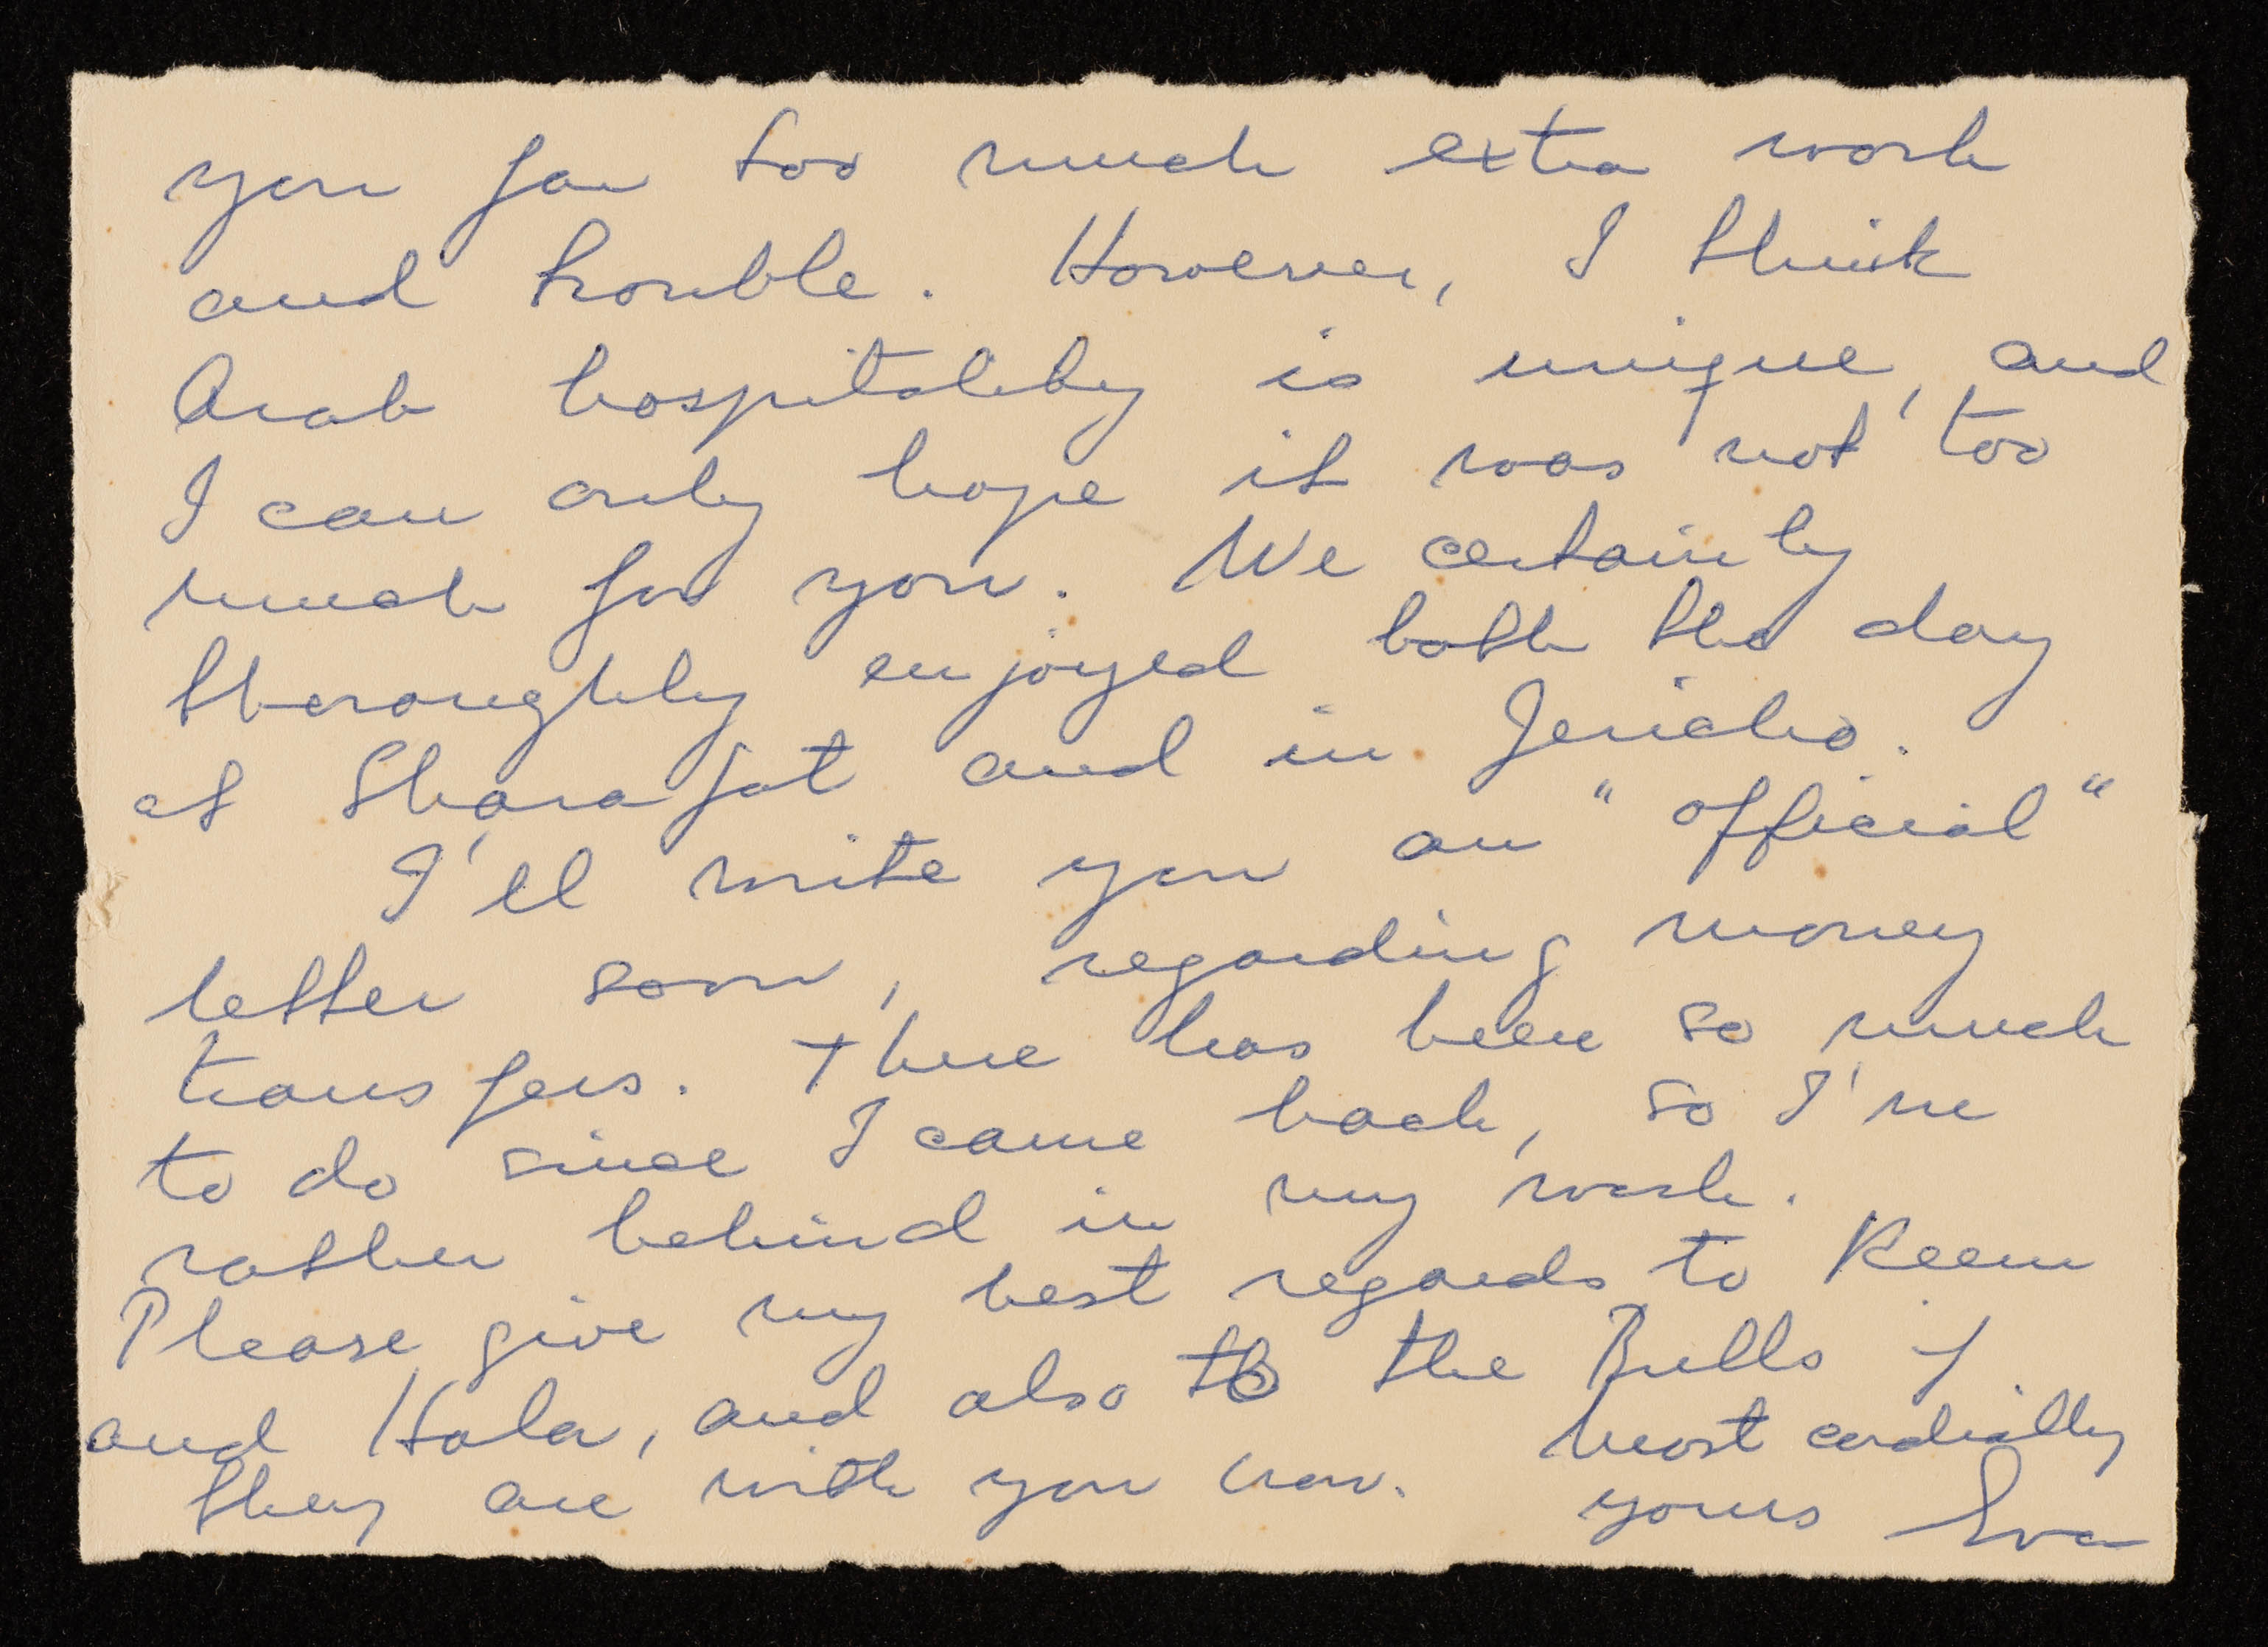 you far too much extra work
and trouble. However, I think
Arab hospitality is unique, and
I can only hope it was not too
much for you. We certainly
thoroughly enjoyed both the day
at Sharafat and in Jericho.
I'll write you an "official"
letter soon, regarding money
transfers. There has been so much
to do since I came back, so I'm
rather behind in my work.
Please give my best regards to Reem
and Hala, and also to the Bulls if
they are with you now.
Most cordially
yours Eva